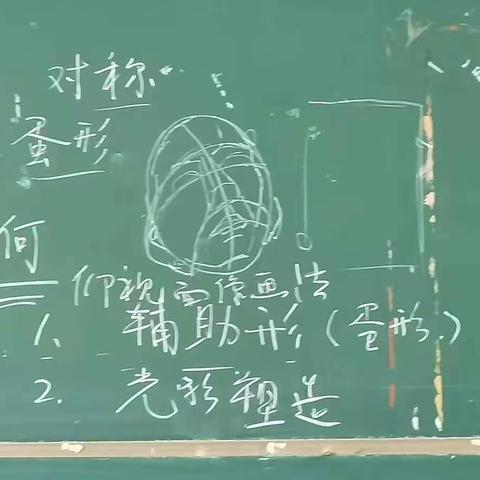 对称
蛋形
何
仰视面像画法
1. 辅助形(蛋形)
2. 光影塑造